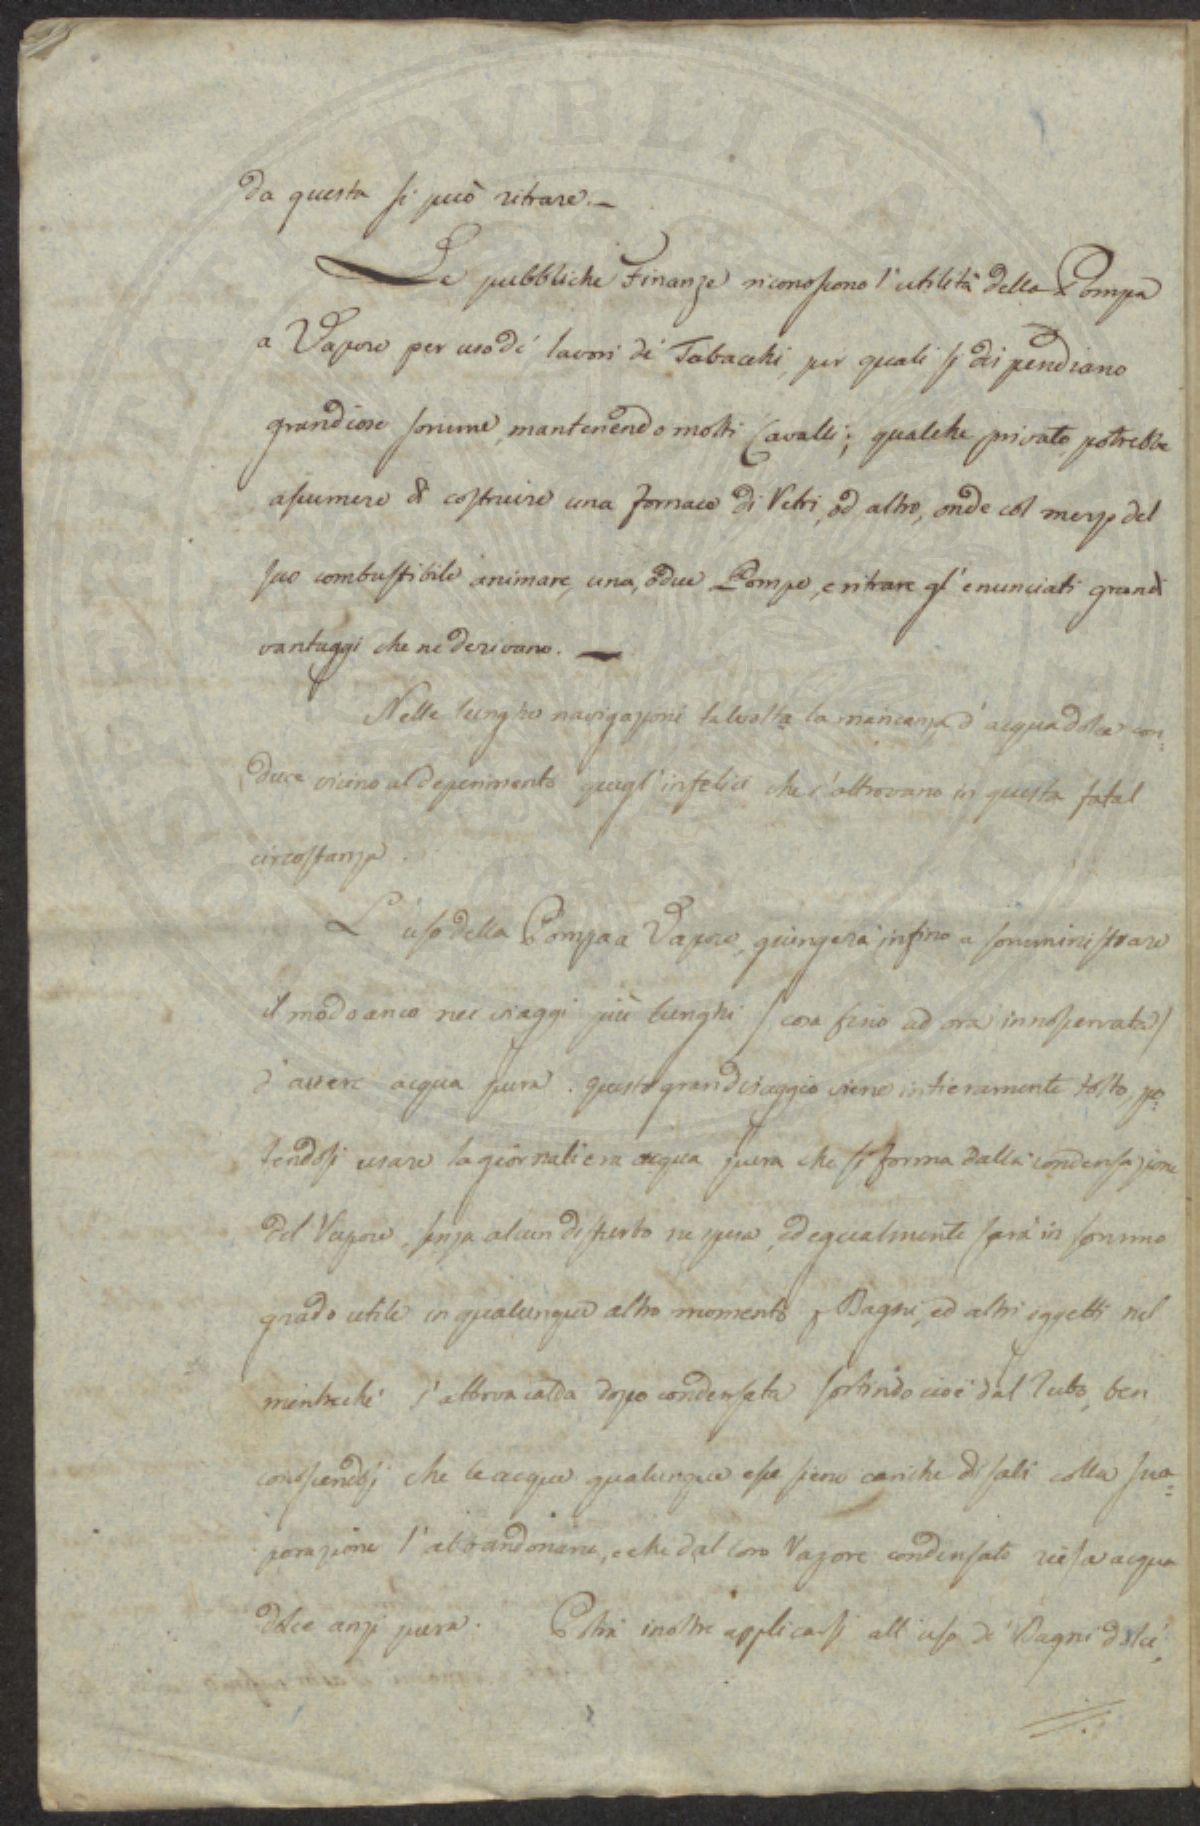 da questa si può ritrare. —
Le pubbliche Finanze riconoscono l'utilità della Pompa
a Vapore per uso de' lavori de' Tabacchi, per quali si dispendiano
grandiose somme, mantenendo molti Cavalli; qualche privato potrebbe
assumere di costruire una fornace di Vetri, od altro, onde col mezzo del
suo combustibile animare, una, o due Pompe, e ritrare gl'enunciati grandi
vantaggi che ne derivano. —
Nelle lunghe navigazioni talvolta la mancanza d'acqua dolce con=
duce vicino al deperimento quegl'infelici che s'attrovano in questa fatal
circostanza.
L'uso della Pompa a Vapore, giungerà infino a somministrare
il modo anco nei viaggi più lunghi / cosa fino ad ora innosservata /
d'avere acqua pura. questo grand disaggio viene intieramente tolto, po=
tendosi usare la giornaliera acqua pura che si forma dalla condensazione
del Vapore, senza alcun disturbo ne spesa, ed egualmente sarà in sommo
grado utile in qualunque altro momento p Bagni, ed altri oggetti nel
mentrechè s'attrova calda dopo condensata sortindo cioè dal Tubo, ben
conoscendosi che le acque qualunque esse siano cariche di sali colla sva=
porazione l'abbandonino, e che dal loro Vapore condensato riesa acqua
dolce anzi pura. Potrà inoltre applicarsi all'uso de' Bagni dolci,